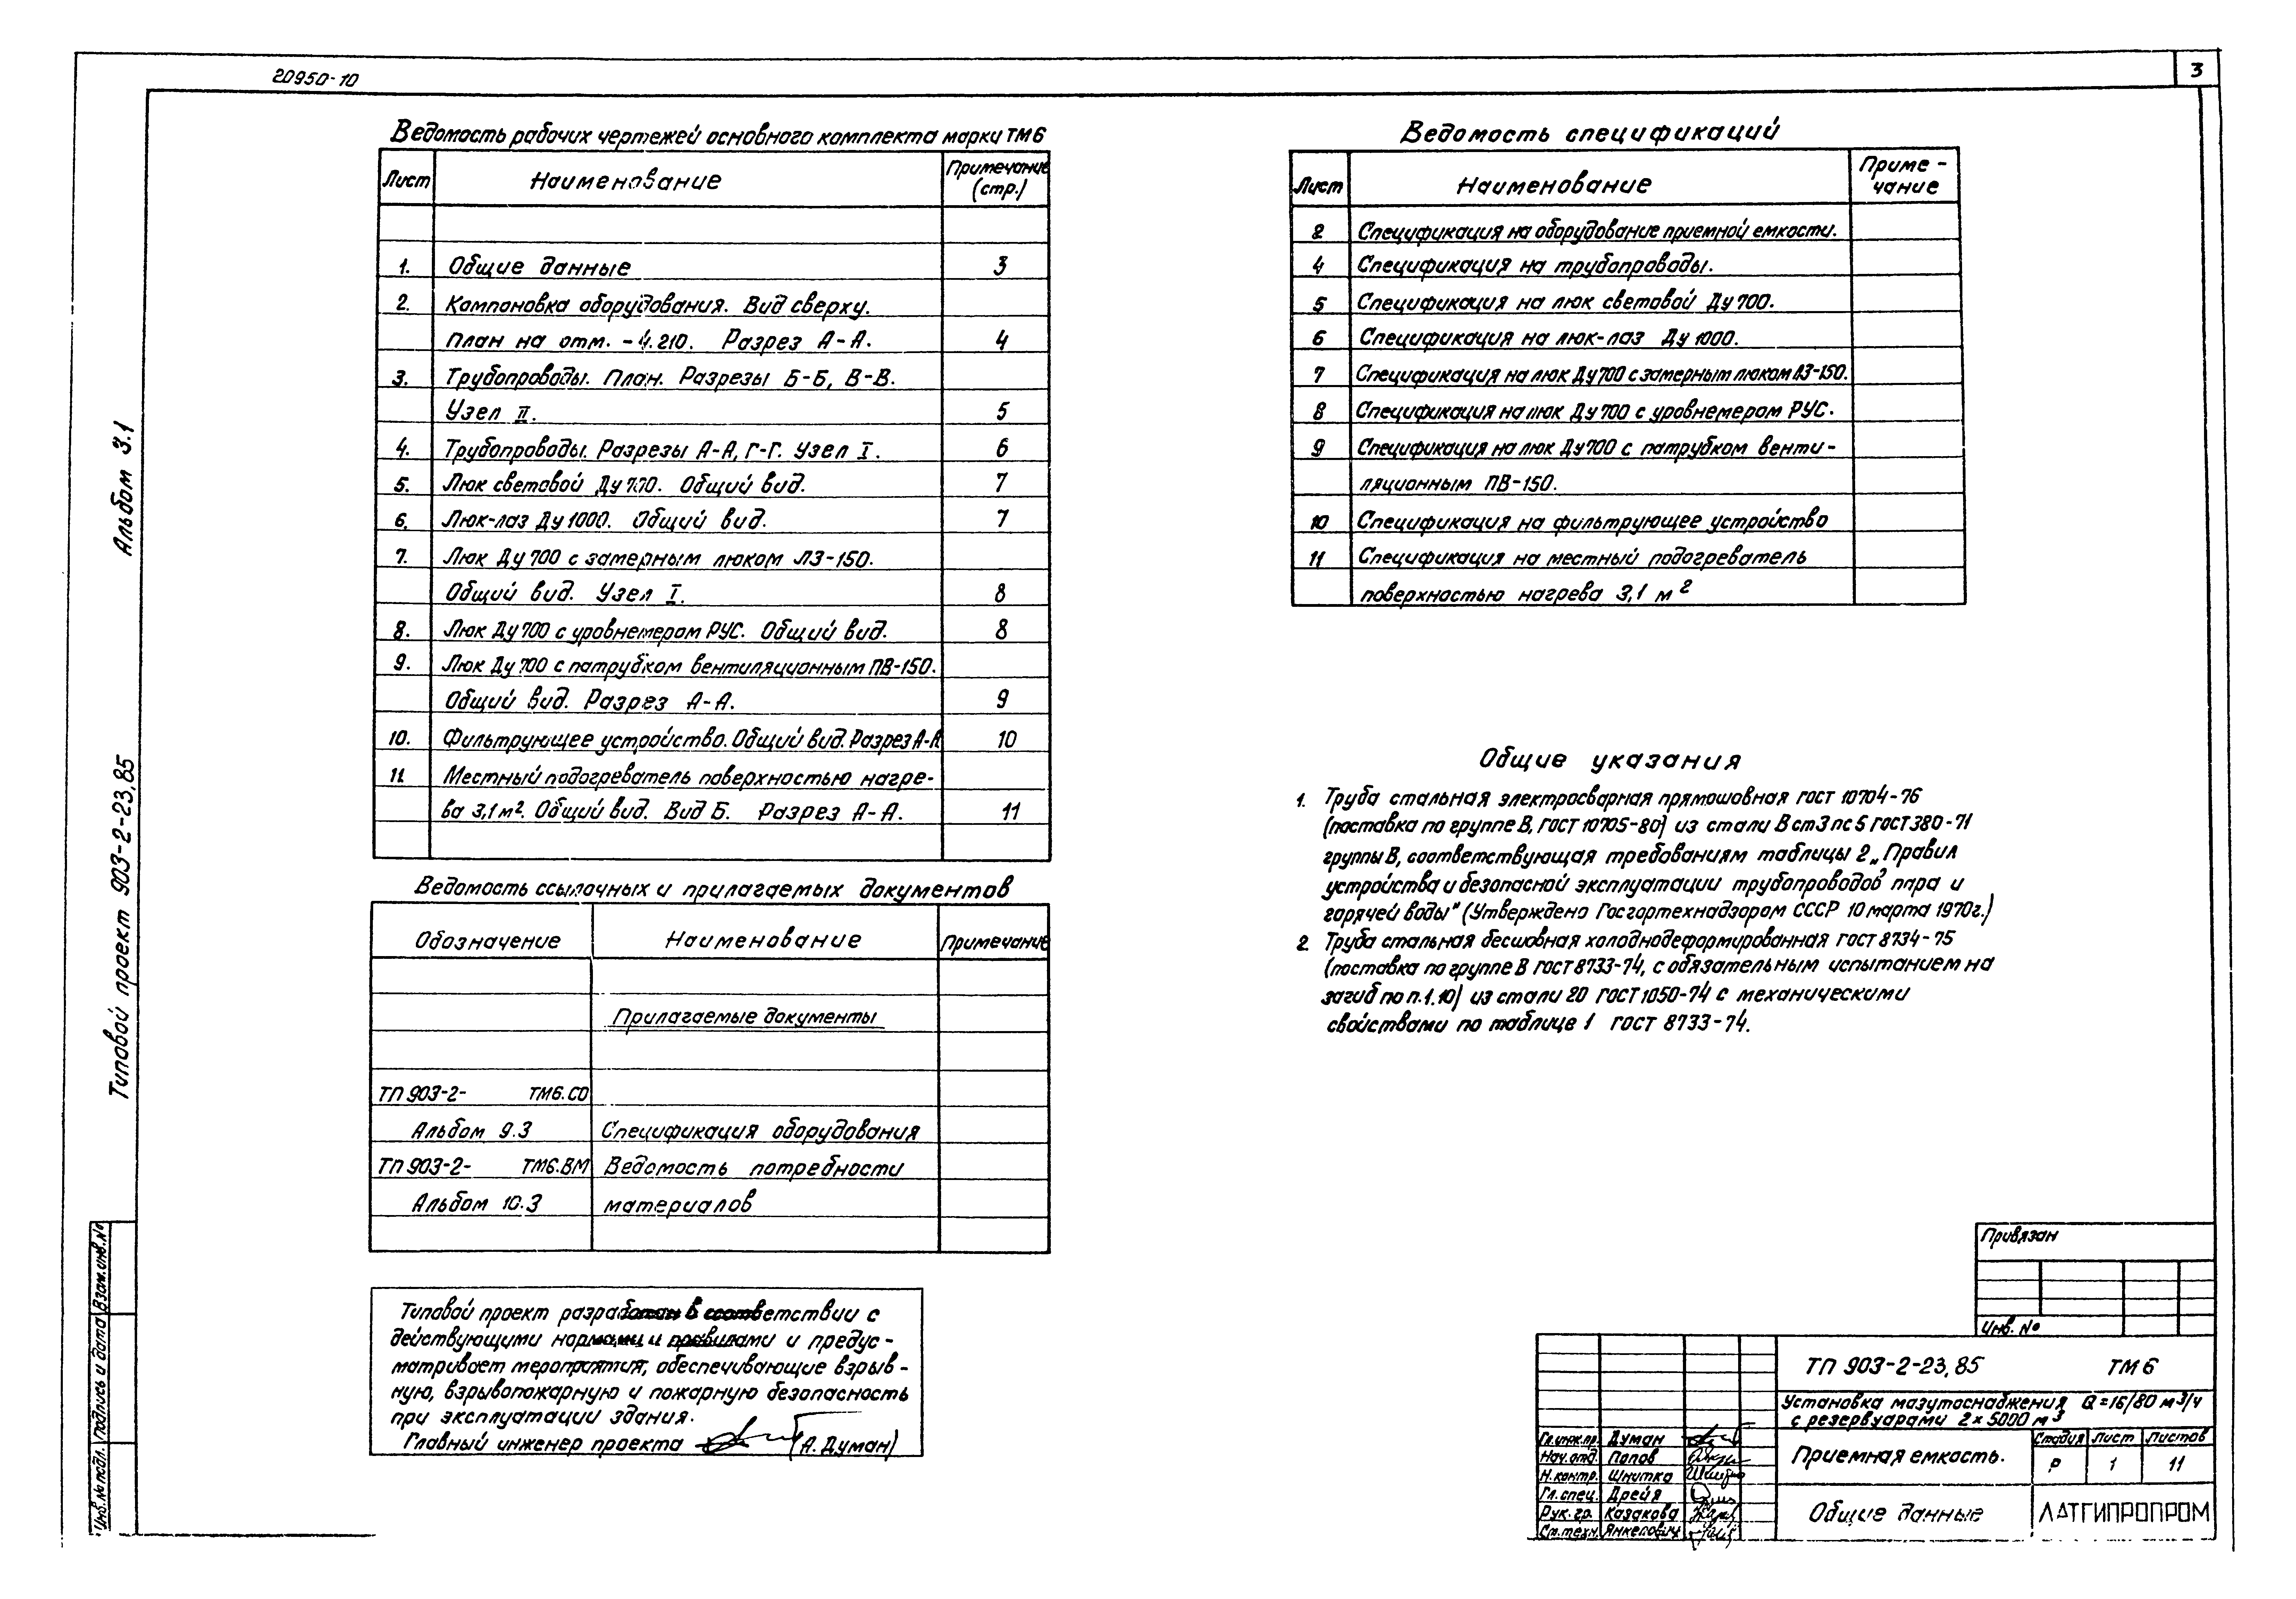 20950-10
3
Альбом 3.1
Типовой проект 903-2-23,85
Ведомость рабочих чертежей основного комплекта марки ТМ6
Лист Наименование Примечание (стр.)
1. Общие данные 3
2. Компоновка оборудования. Вид сверху.
План на отм. -4.210. Разрез А-А. 4
3. Трубопроводы. План. Разрезы Б-Б, В-В.
Узел II. 5
4. Трубопроводы. Разрезы А-А, Г-Г. Узел I. 6
5. Люк световой Ду 700. Общий вид. 7
6. Люк-лаз Ду 1000. Общий вид. 7
7. Люк Ду 700 с замерным люком ЛЗ-150.
Общий вид. Узел I. 8
8. Люк Ду 700 с уровнемером РУС. Общий вид. 8
9. Люк Ду 700 с патрубком вентиляционным ПВ-150.
Общий вид. Разрез А-А. 9
10. Фильтрующее устройство. Общий вид. Разрез А-А 10
11. Местный подогреватель поверхностью нагре-
ва 3,1 м². Общий вид. Вид Б. Разрез А-А. 11
Ведомость ссылочных и прилагаемых документов
Обозначение Наименование Примечание
Прилагаемые документы
ТП 903-2- ТМ6.СО
Альбом 9.3 Спецификация оборудования
ТП 903-2- ТМ6.ВМ Ведомость потребности
Альбом 10.3 материалов
Типовой проект разработан в соответствии с
действующими нормами и правилами и предус-
матривает мероприятия, обеспечивающие взрыв-
ную, взрывопожарную и пожарную безопасность
при эксплуатации здания.
Главный инженер проекта (А. Думан)
Ведомость спецификаций
Лист Наименование Приме-
чание
2 Спецификация на оборудование приемной емкости.
4 Спецификация на трубопроводы.
5 Спецификация на люк световой Ду 700.
6 Спецификация на люк-лаз Ду 1000.
7 Спецификация на люк Ду 700 с замерным люком ЛЗ-150.
8 Спецификация на люк Ду 700 с уровнемером РУС.
9 Спецификация на люк Ду 700 с патрубком венти-
ляционным ПВ-150.
10 Спецификация на фильтрующее устройство
11 Спецификация на местный подогреватель
поверхностью нагрева 3,1 м²
Общие указания
1. Труба стальная электросварная прямошовная ГОСТ 10704-76
(поставка по группе В, ГОСТ 10705-80) из стали Вст3пс5 ГОСТ 380-71
группы В, соответствующая требованиям таблицы 2 „Правил
устройства и безопасной эксплуатации трубопроводов пара и
горячей воды" (Утверждено Госгортехнадзором СССР 10 марта 1970г.)
2. Труба стальная бесшовная холоднодеформированная ГОСТ 8734-75
(поставка по группе В ГОСТ 8733-74, с обязательным испытанием на
загиб по п.1.10) из стали 20 ГОСТ 1050-74 с механическими
свойствами по таблице 1 ГОСТ 8733-74.
Привязан
Инв. №
ТП 903-2-23,85 ТМ6
Установка мазутоснабжения Q=16/80 м³/ч
с резервуарами 2×5000 м³
Гл.инж.пр. Думан
Нач.отд. Попов
Н.контр. Шнитка
Гл.спец. Дрейя
Рук.гр. Казакова
Ст.техн. Янкелович
Приемная емкость.
Стадия Лист Листов
Р 1 11
Общие данные
ЛАТГИПРОПРОМ
Инв.№ подл. Подпись и дата Взам.инв.№